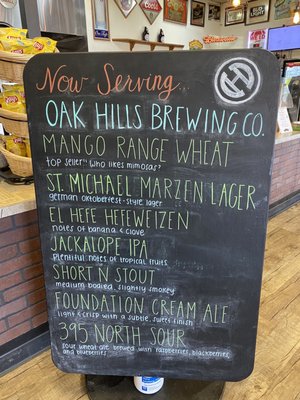 Now Serving...
OAK HILLS BREWING CO.
MANGO RANGE WHEAT
top seller!! Who likes mimosas?
ST. MICHAEL MARZEN LAGER
german oktoberfest-style lager
EL HEFE HEFEWEIZEN
notes of banana & clove
JACKALOPE IPA
plentiful notes of tropical fruits
SHORT N STOUT
medium bodied, slightly smokey
FOUNDATION CREAM ALE
light & crisp with a subtle, sweet finish
395 NORTH SOUR
sour wheat ale brewed with raspberries, blackberries
and blueberries